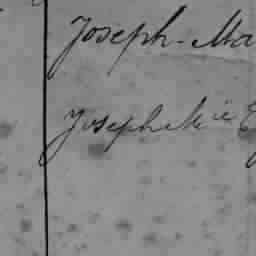 Joseph-Ma
Joseph Mie E